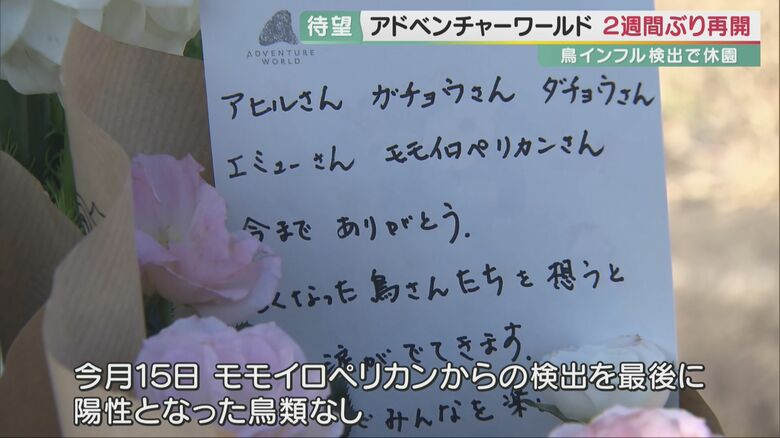 待望
アドベンチャーワールド 2週間ぶり再開
鳥インフル検出で休園
ADVENTURE
WORLD
アヒルさん ガチョウさん ダチョウさん
エミューさん モモイロペリカンさん
今まで ありがとう.
くなった 鳥さんたちを 想うと
涙がでてきます.
みんなを 楽
今月15日 モモイロペリカンからの検出を最後に
陽性となった鳥類なし